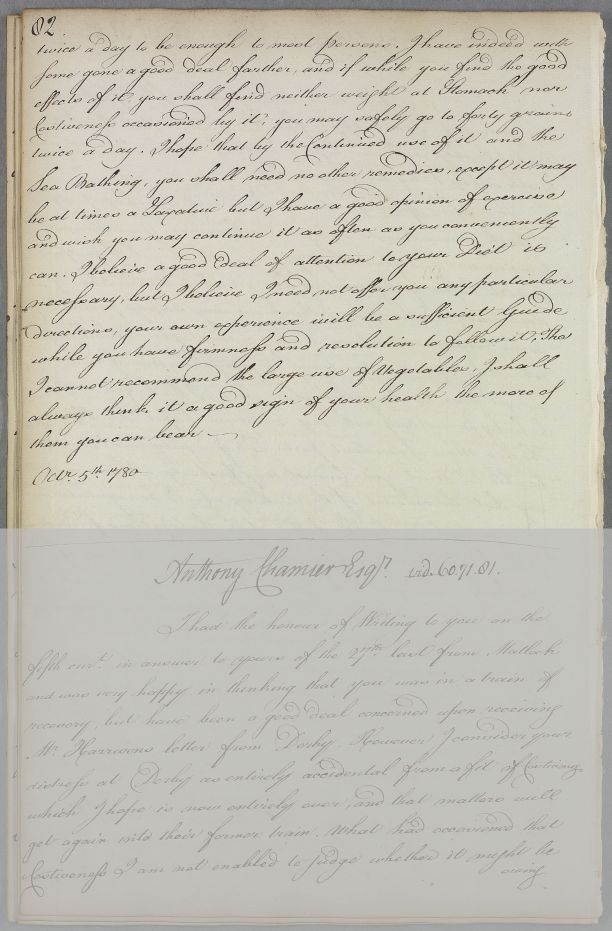 82
twice a day to be enough to most persons. I have indeed with
some gone a good deal farther, and if while you find the good
effects of it, you shall find neither weight at Stomach nor
Costiveness occasioned by it; you may safely go to forty grains
twice a day. I hope that by the Continued use of it and the
Sea Bathing, you shall need no other remedies, except it may
be at times a Laxative but I have a good opinion of exercise
and wish you may continue it as often as you conveniently
can. I believe a good deal of attention to your Diet is
necessary, but I believe I need not offer you any particular
directions, your own experience will be a sufficient Guide
while you have firmness and resolution to follow it, Tho
I cannot recommend the large use of Vegetables, I shall
always think it a good sign of your health the more of
them you can bear
Octr. 5th. 1780
Anthony Chamier Esqr. vid. 60.71.81.
I had the honour of Writing to you on the
fifth curt. in answer to yours of the 27th. last from Matlock
and was very happy in thinking that you was in a train of
recovery, but have been a good deal concerned upon receiving
Mr. Harrisons letter from Derby. However I consider your
distress at Derby as entirely accidental from a fit of Costiveness
which I hope is now entirely over, and that matters will
get again into their former train. What had occasioned that
Costiveness I am not enabled to judge whether it might be
owing